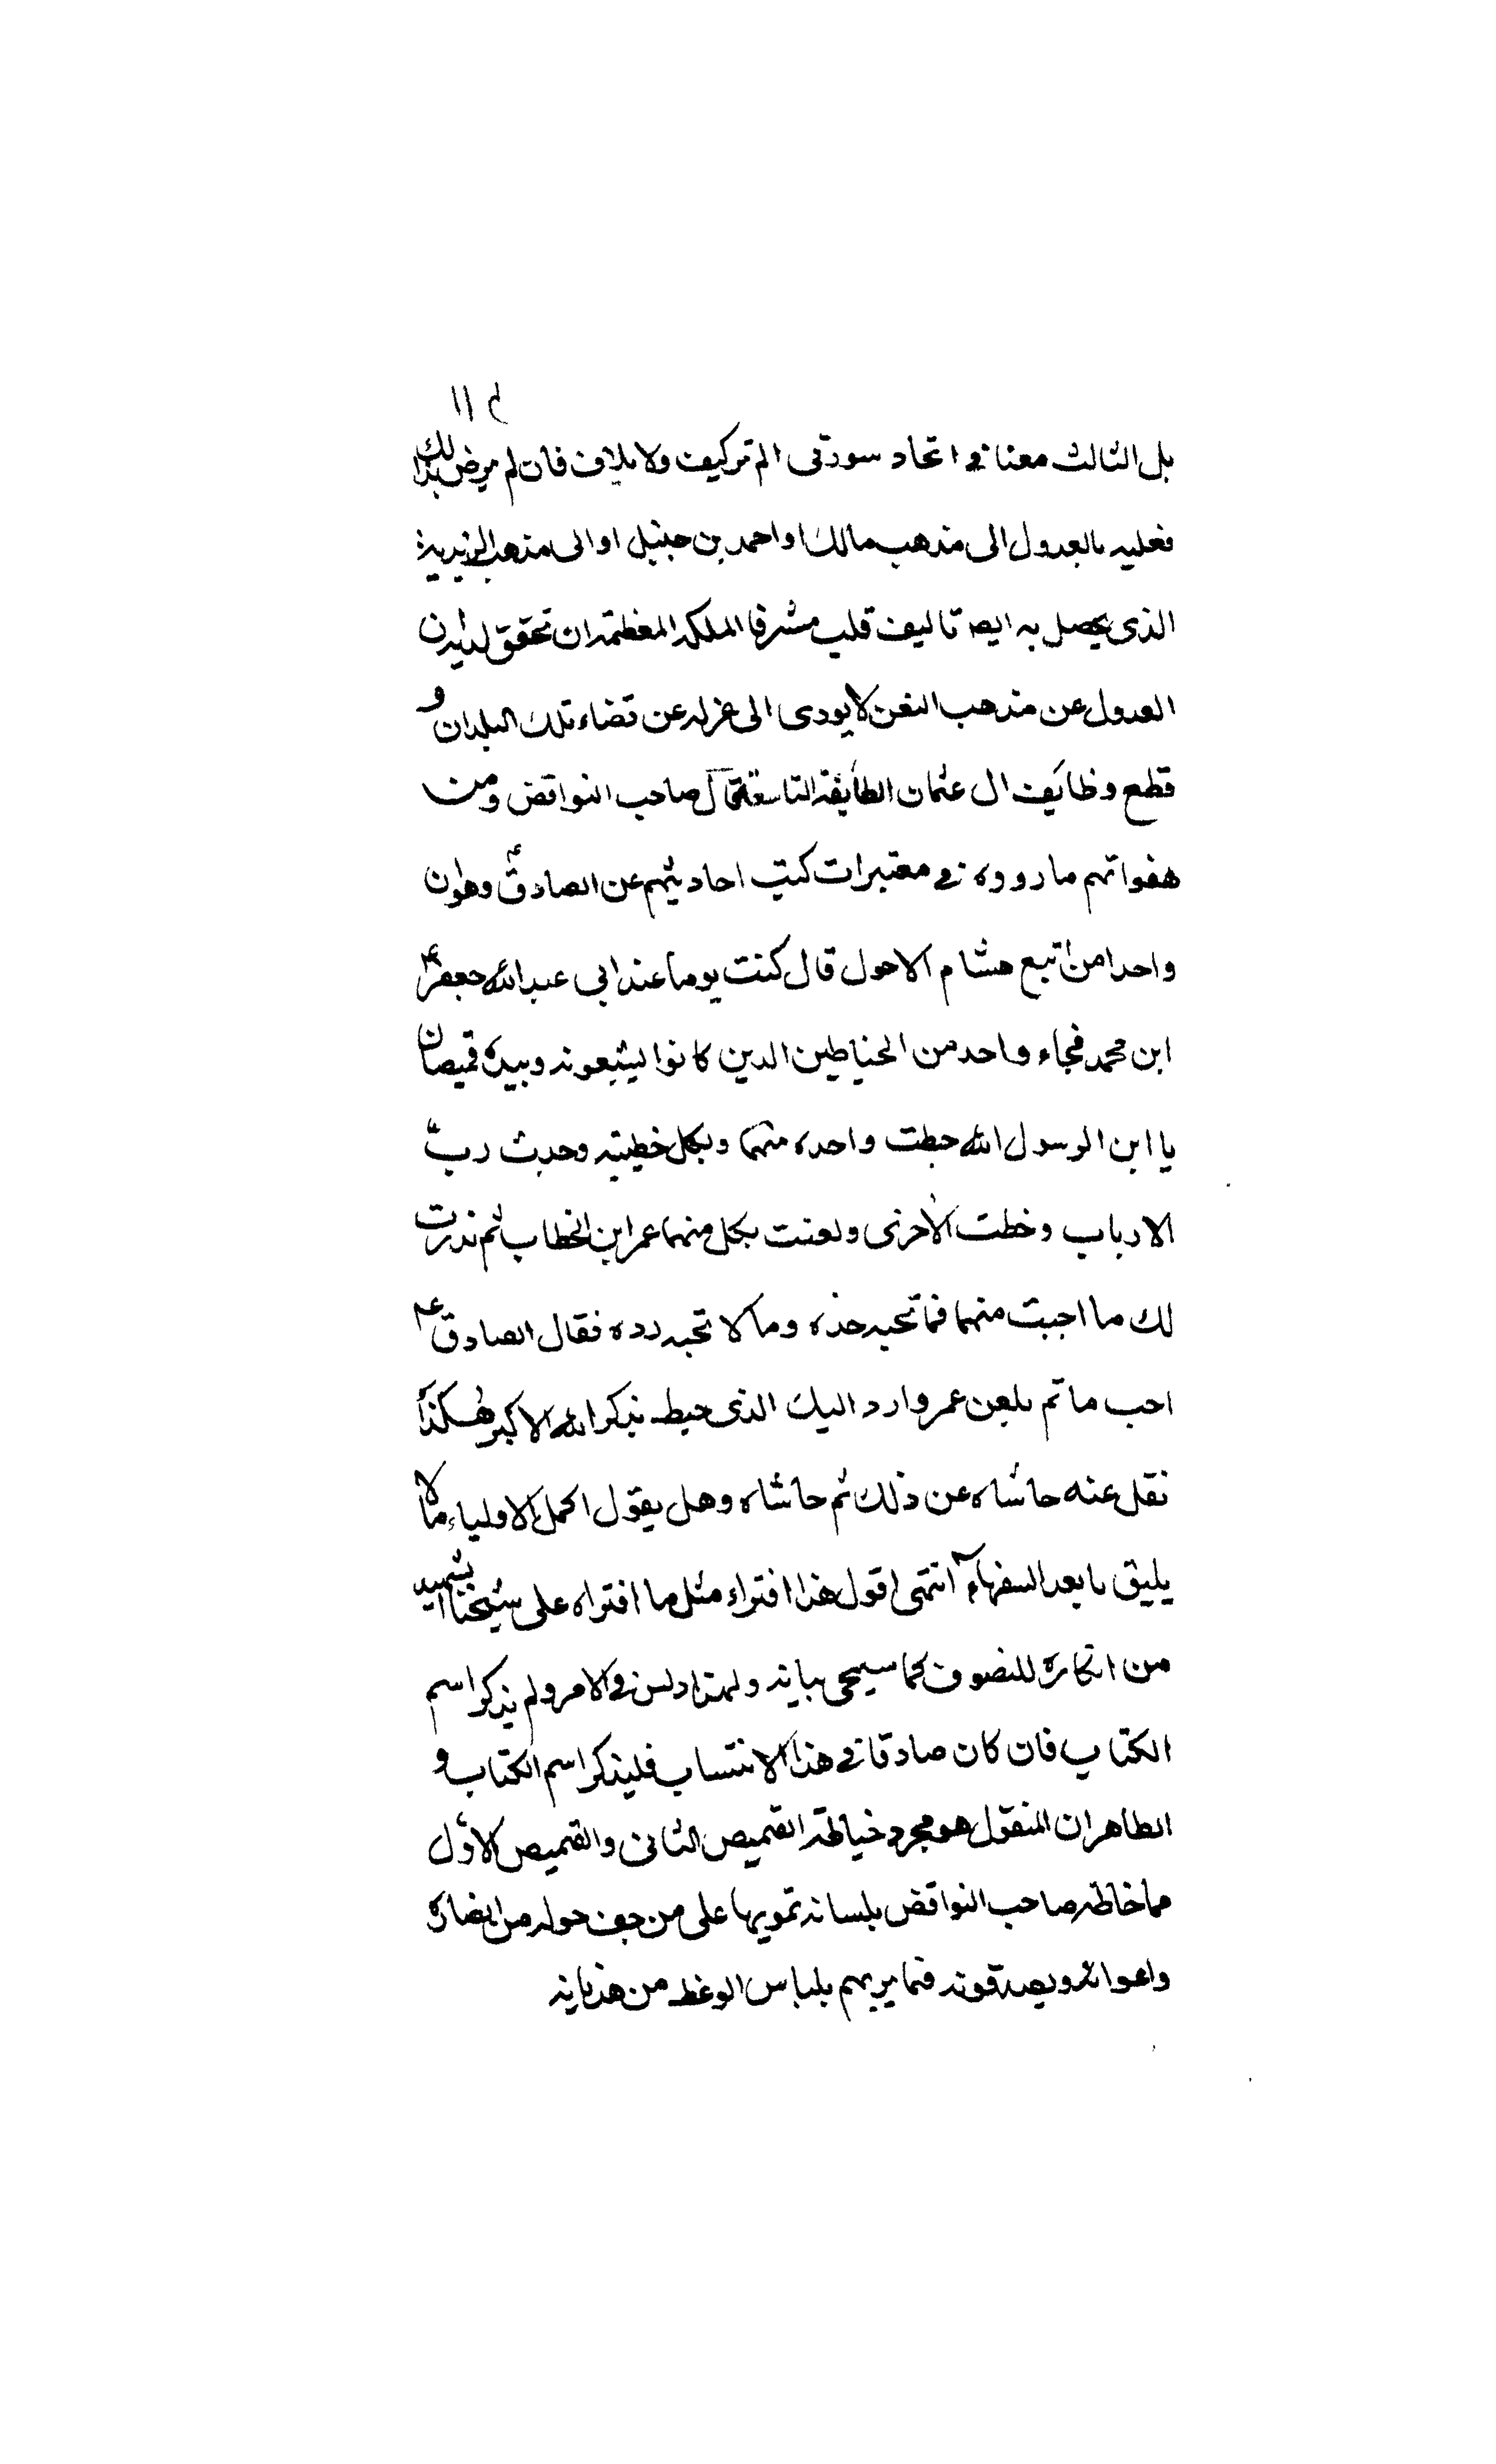 ١١٤
بل الثالث معنا في اتحاد سورتى الم تر كيف ولايلاف فان لم يرض بذلك
فعليه بالعدول الى مذهب مالك او احمد بن حنبل او الى مذهب الزيدية
الذى يحصل به ايضا تاليف قلب مشرفا الملكه المعظمه ان تحقق لديه ان
العدول عن مذهب لا يودى الى عزله عن قضاء تلك البلدان و
قطع وظايف ال عثمان الطايفة قال صاحب النواقض ومن
هفواتهم ما رووه في معتبرات كتب احاديثهم عن الصادق ع وهو ان
واحدا من اتبع هشام الاحول قال كنت يوما عند ابي عبد الله جعفر ع
ابن محمد فجاء واحد من الخياطين الدين كانوا يتبعونه وبيده قميصان
يا ابن الرسول الله خطت واحده منهما وبكل خطيته وحدت رب
الارباب وخطت الاخرى ولعنت بكل منهما عمر ابن الخطاب ثم نذرت
لك ما احببت منهما فما تحبه خذه وما لا تحبه رده فقال الصادق ع
احب ما تم بلعن عمر وارد اليك الذى خيط بذكر الله الاكبر هكذا
نقل عنه حاشاه عن ذلك ثم حاشاه وهل يقول اكمل الاولياء ما لا
يليق بابعد السفهاء انتهى اقول هذا افتراء مثل ما افتراه على شيخنا الشهيد
من انكاره للتصوف كما سيجى بيانه ولهذا دلس في الامر ولم يذكر اسم
الكتاب فان كان صادقا في هذا الانتساب فليذكر اسم الكتاب و
الظاهر ان المنقول هو مجرد خياطة القميص الثانى والقميص الاول
مما خاطه صاحب النواقض بلسانه تمويها على من حوله من انصاره
واعوانه ويصدقونه فيما يريهم بلباس الوعظ من هذيانه